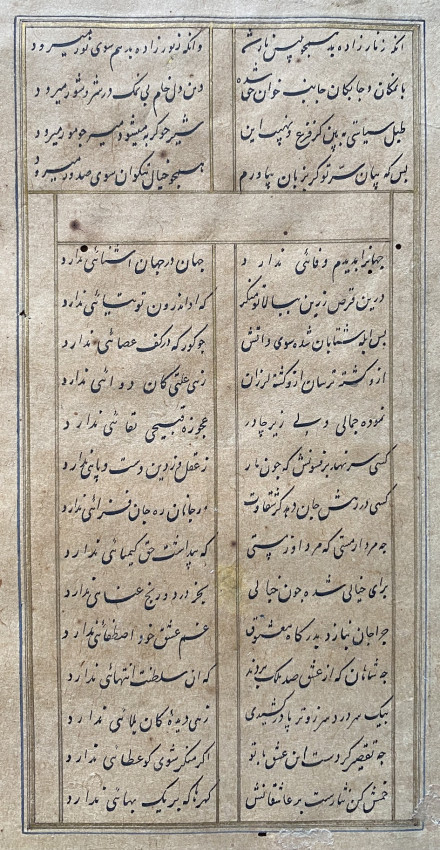 انکه زنار زاده بد همچو نار شد وانکه زنور زاده بد هم سوی نور میرود
بانمکان و جابکان جانب خوان حق شده وین دل خام بی نمک در شر و شور میرود
طبل سیاستی ببین کز فزع نهیب این شیر جو کربه میشود میر جو مور میرود
بس که بیان سر تو کر بزبان نیاورم همجو خیال نیکوان سوی صدور میرود
جهانرا بدیدم وفائی ندارد جهان در جهان اشنائی ندارد
درین قرص زرین ببالا تو منکر که او اندرون بوریائی ندارد
بس ابله شتابان شده سوی دامش جو کور که در کف عصائی ندارد
ازو کشته ترسان ازو کشته لرزان زهی علتی کان دوائی ندارد
نموده جمالی ولی زیر چادر عجوزه قبیحی لقائی ندارد
کسی سر نهد بر فسونش که جون مار زعقل و زدین دست و پائی ندارد
کسی در رهش جان دهد کز شقاوت زجانان ره جان فزائی ندارد
جه مردار مستی که مرد او ز پستی که پنداشت حق کیمیائی ندارد
برای خیالی شده جون خیالی بجز درد و رنج عنائی ندارد
جرا جان نیازد بدرکاه معشوق عشق خود اصطفائی ندارد
جه شاهان که از عشق صد ملک بردند که ان سلطنت انتهائی ندارد
بیک درد سر زو تو پا در کشیدی زهی دیده کان بلائی ندارد
جه تقصیر کردست این عشق با تو اکر منکر شوی کو عطائی ندارد
خمش کن نثارست بر عاشقانش کهرها که هر یک بهائی ندارد